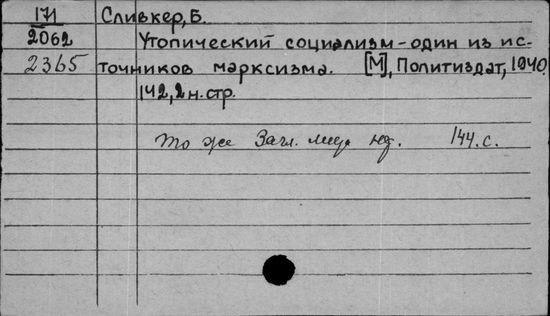 171
2062
2365
Сливкер, Б.
Утопический социализм – один из ис-
точников марксизма. [М], Политиздат, 1940.
142, 2 н. стр.
То же Загл. 144. с.